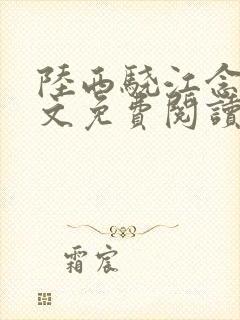 陸西驍江念
文免費閱讀
霜宸